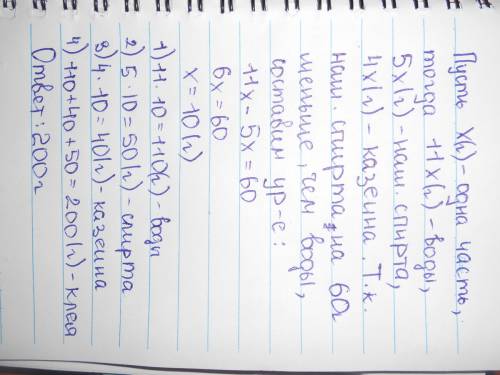 Пусть х(г) - одна часть,
тогда 11х(г) - воды,
5х(г) - наш. спирта,
4х(г) - казеина. Т.к.
наш. спирта на 60г
меньше, чем воды,
составим ур-е:
11х - 5х = 60
6х = 60
х = 10(г)
1) 11 · 10 = 110(г) - воды
2) 5 · 10 = 50(г) - спирта
3) 4 · 10 = 40(г) - казеина
4) 110 + 40 + 50 = 200(г) - клея
Ответ: 200г